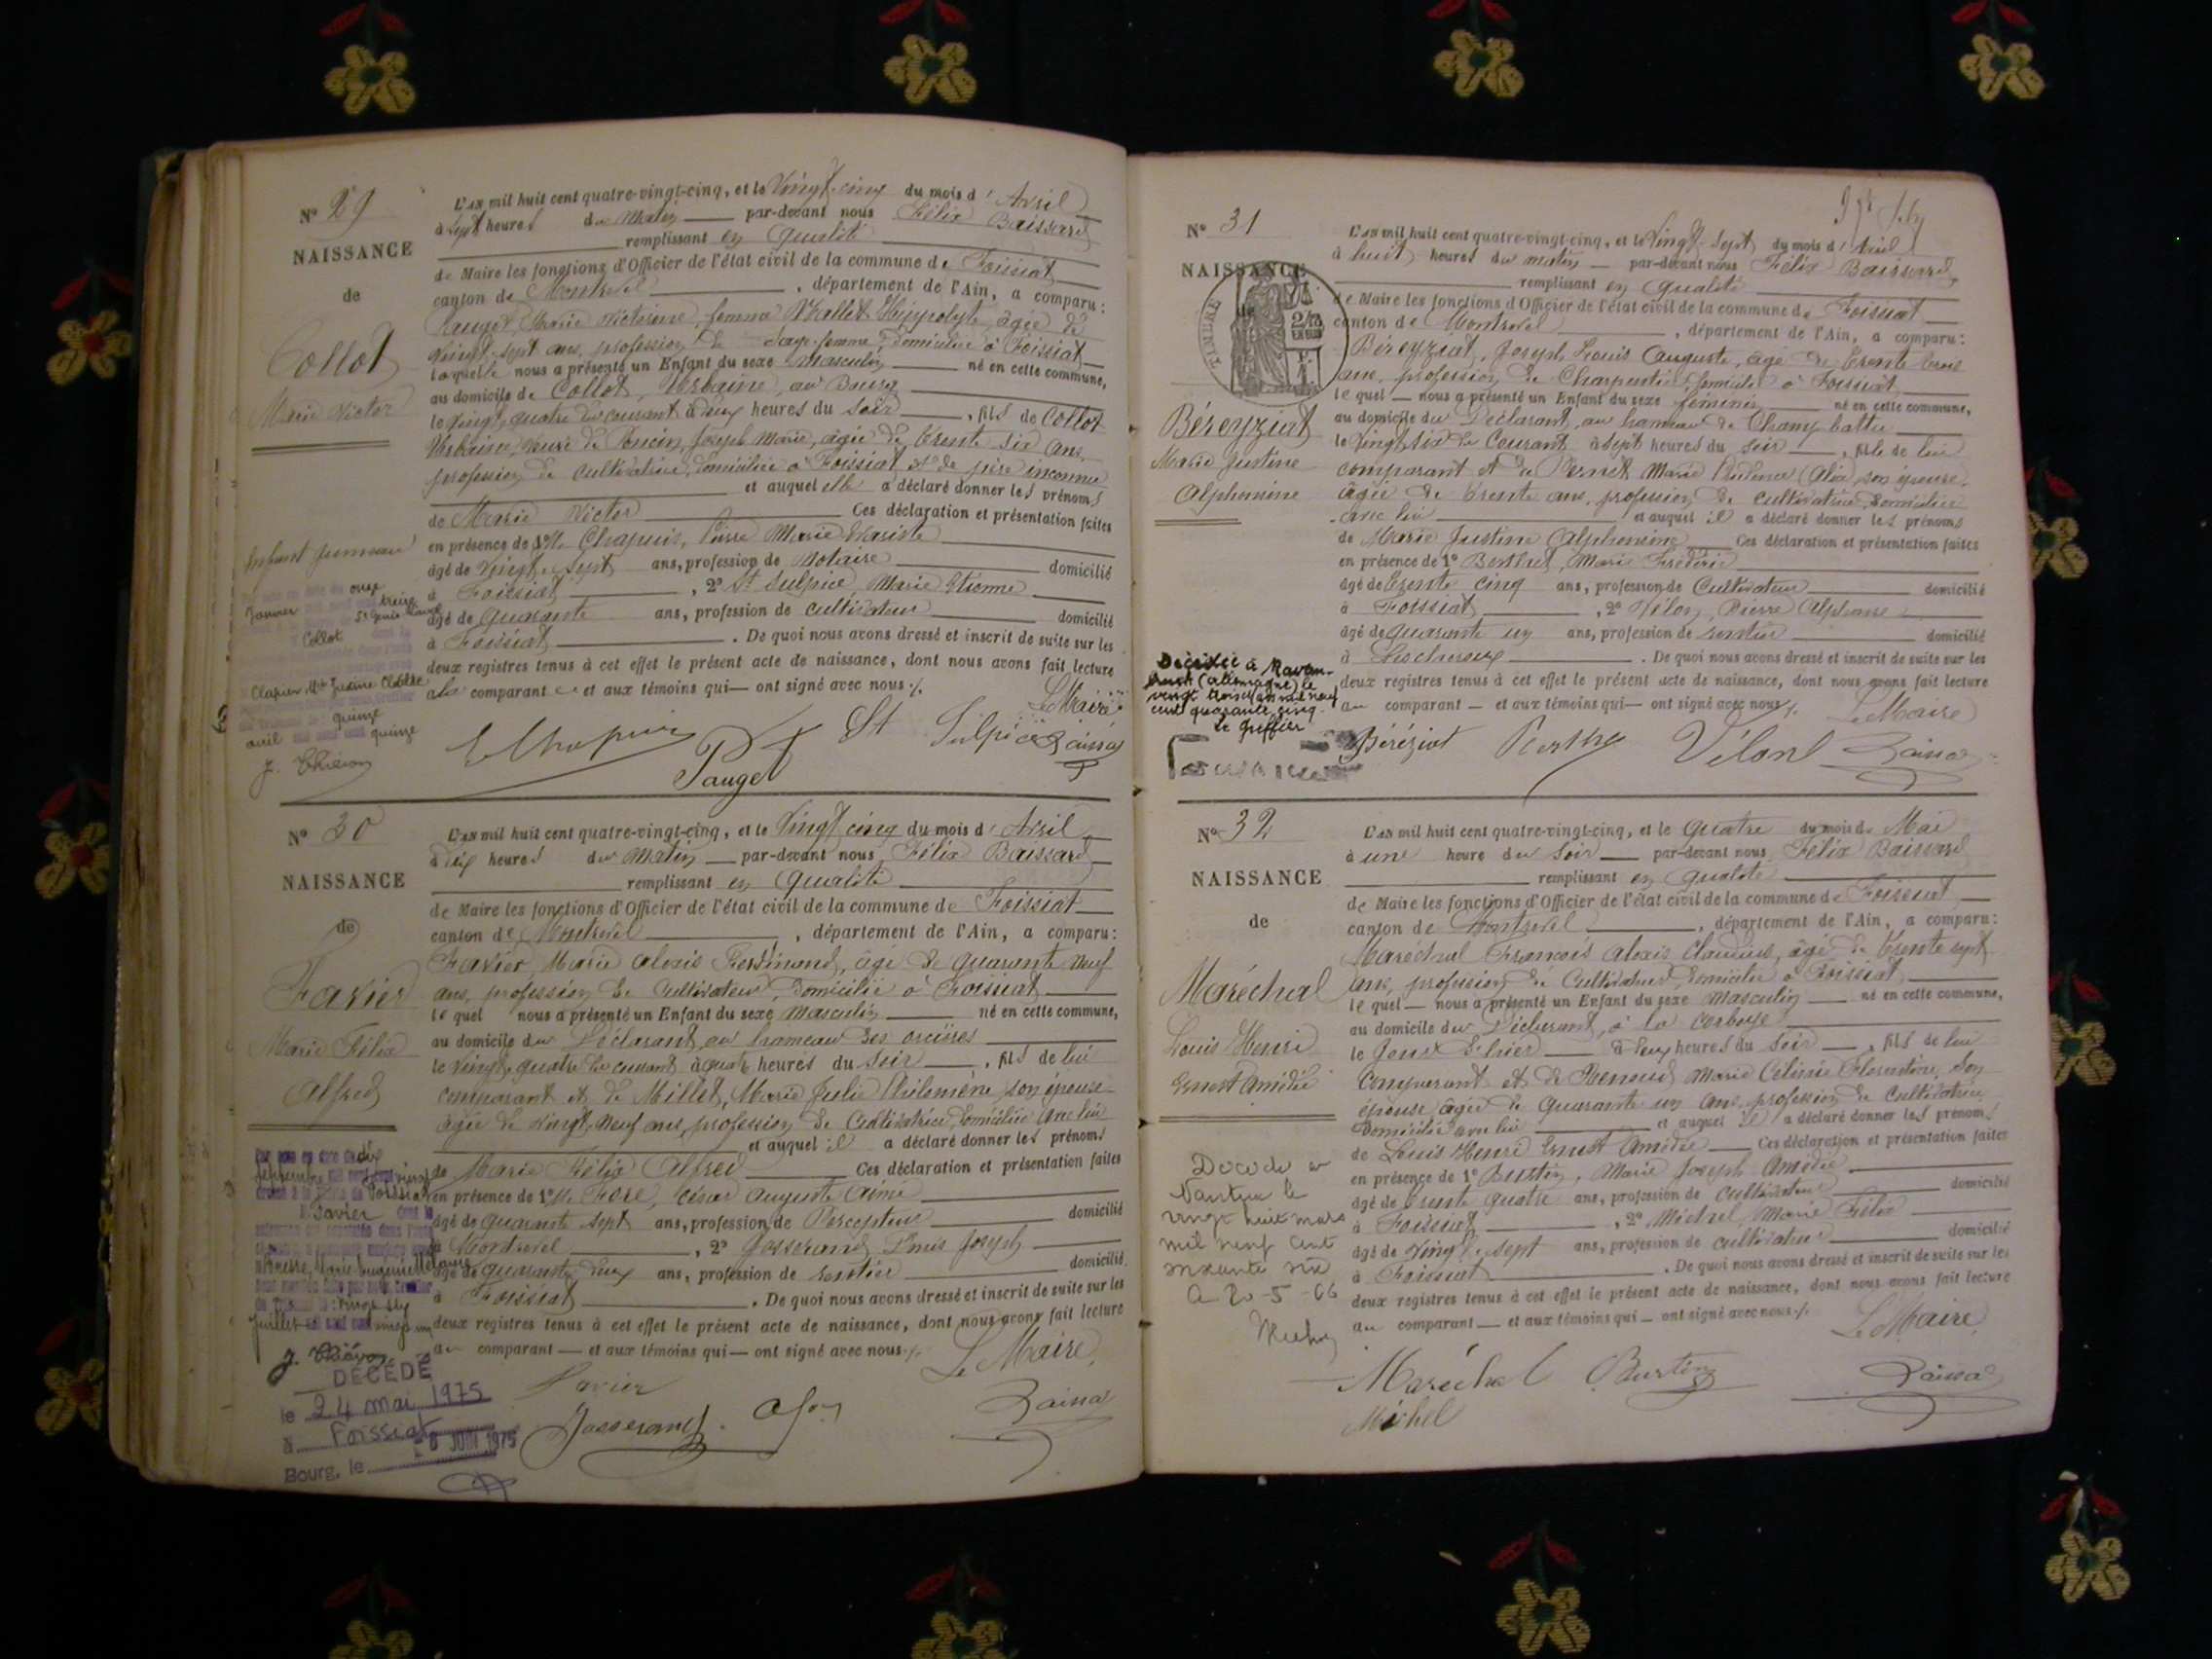 N° 29
NAISSANCE
de
Collot
Marie Victor
Enfant jumeau
onze
Janvier treize
Collot
quinze
avril quinze
L'AN mil huit cent quatre-vingt-cinq, et le Vingt cinq du mois d'Avril
à Sept heures du Matin par-devant nous Félix Baissard
remplissant en qualité
de Maire les fonctions d'Officier de l'état civil de la commune de Foissiat
canton de Montrevel, département de l'Ain, a comparu:
Pauget Marie Victorine, femme Mallet Hippolyte, âgée de
vingt-sept ans, profession de Sage-femme, domiciliée à Foissiat
laquelle nous a présenté un Enfant du sexe Masculin né en cette commune,
au domicile de Collot, Urbaine, au Bourg
le vingt-quatre du courant à deux heures du Soir, fils de Collot
Urbaine, veuve de Poncin, Joseph Marie, âgée de trente six ans,
profession de cultivatrice, domiciliée à Foissiat, et de père inconnu
et auquel elle a déclaré donner les prénoms
de Marie Victor Ces déclaration et présentation faites
en présence de 1° M. Chapuis, Pierre Marie
âgé de Vingt-Sept ans, profession de Notaire domicilié
à Foissiat, 2° St Sulpice, Marie Etienne
âgé de Quarante ans, profession de cultivateur domicilié
à Foissiat. De quoi nous avons dressé et inscrit de suite sur les
deux registres tenus à cet effet le présent acte de naissance, dont nous avons fait lecture
à la comparante et aux témoins qui ont signé avec nous ./.
Le Maire
Chapuis Pauget St Sulpice Baissard
N° 30
NAISSANCE
de
Favier
Marie Félix
Alfred
DÉCÉDÉ
le 24 mai 1975
à Foissiat
Bourg, le 6 JUIN 1975
L'AN mil huit cent quatre-vingt-cinq, et le Vingt cinq du mois d'Avril
à dix heures du Matin par-devant nous Félix Baissard
remplissant en qualité
de Maire les fonctions d'Officier de l'état civil de la commune de Foissiat
canton de Montrevel, département de l'Ain, a comparu:
Favier, Marie Alexis Ferdinand, âgé de quarante neuf
ans, profession de Cultivateur, domicilié à Foissiat
le quel nous a présenté un Enfant du sexe Masculin né en cette commune,
au domicile du Déclarant, au hameau des
le Vingt-quatre du courant à quatre heures du Soir, fils de lui
comparant et de Millet, Marie Julie Philomène son épouse
âgée de vingt-neuf ans, profession de Cultivatrice, domiciliée avec lui
et auquel il a déclaré donner les prénoms
de Marie Félix Alfred Ces déclaration et présentation faites
en présence de 1° M. César Auguste Aimé
âgé de quarante sept ans, profession de Percepteur domicilié
à Montrevel, 2° Josserand, Louis Joseph
âgé de quarante deux ans, profession de rentier domicilié
à Foissiat. De quoi nous avons dressé et inscrit de suite sur les
deux registres tenus à cet effet le présent acte de naissance, dont nous avons fait lecture
au comparant et aux témoins qui ont signé avec nous ./.
Le Maire
Favier
Josserand Baissard
N° 31
NAISSANCE
de
TIMBRE
Béreyziat
Marie Justine
Alphonsine
Décédée à Ravens-
bruck (Allemagne) le
vingt trois mil neuf
cent quarante cinq.
Le Greffier
L'AN mil huit cent quatre-vingt-cinq, et le Vingt-Sept du mois d'Avril
à huit heures du matin par-devant nous Félix Baissard
remplissant en qualité
de Maire les fonctions d'Officier de l'état civil de la commune de Foissiat
canton de Montrevel, département de l'Ain, a comparu:
Béreyziat, Joseph Louis Auguste, âgé de trente trois
ans, profession de Charpentier, domicilié à Foissiat
le quel nous a présenté un Enfant du sexe féminin né en cette commune,
au domicile du Déclarant, au hameau de Champ battu
le Vingt six du Courant à Sept heures du Soir, fille de lui
comparant et de Pernet Marie Prudence Alix son épouse
âgée de trente ans, profession de cultivatrice, domiciliée
avec lui et auquel il a déclaré donner les prénoms
de Marie Justine Alphonsine Ces déclaration et présentation faites
en présence de 1° Berthet, Marie Frédéric
âgé de trente cinq ans, profession de Cultivateur domicilié
à Foissiat, 2° Vélon, Pierre Alphonse
âgé de quarante un ans, profession de rentier domicilié
à Lescheroux. De quoi nous avons dressé et inscrit de suite sur les
deux registres tenus à cet effet le présent acte de naissance, dont nous avons fait lecture
au comparant et aux témoins qui ont signé avec nous ./.
Le Maire
Béréziat Berthet Vélon Baissard
N° 32
NAISSANCE
de
Maréchal
Louis Henri
Ernest Amédée
Décédé à
Nantua le
vingt huit mars
mil neuf cent
soixante six
L'AN mil huit cent quatre-vingt-cinq, et le quatre du mois de Mai
à une heure du Soir par-devant nous Félix Baissard
remplissant en qualité
de Maire les fonctions d'Officier de l'état civil de la commune de Foissiat
canton de Montrevel, département de l'Ain, a comparu:
Maréchal François Alexis Claudius, âgé de trente sept
ans, profession de Cultivateur, domicilié à Foissiat
le quel nous a présenté un Enfant du sexe Masculin né en cette commune,
au domicile du Déclarant, à la
le Jour d'hier à deux heures du Soir, fils de lui
Comparant et de Renoud Marie Célinie Florentine, son
épouse, âgée de quarante un ans, profession de Cultivatrice,
domiciliée avec lui et auquel il a déclaré donner les prénoms
de Louis Henri Ernest Amédée Ces déclaration et présentation faites
en présence de 1° Burtin, Marie Joseph Amédée
âgé de trente quatre ans, profession de cultivateur domicilié
à Foissiat, 2° Michel, Marie Félix
âgé de Vingt-sept ans, profession de cultivateur domicilié
à Foissiat. De quoi nous avons dressé et inscrit de suite sur les
deux registres tenus à cet effet le présent acte de naissance, dont nous avons fait lecture
au comparant et aux témoins qui ont signé avec nous ./.
Le Maire
Maréchal Burtin Baissard
Michel